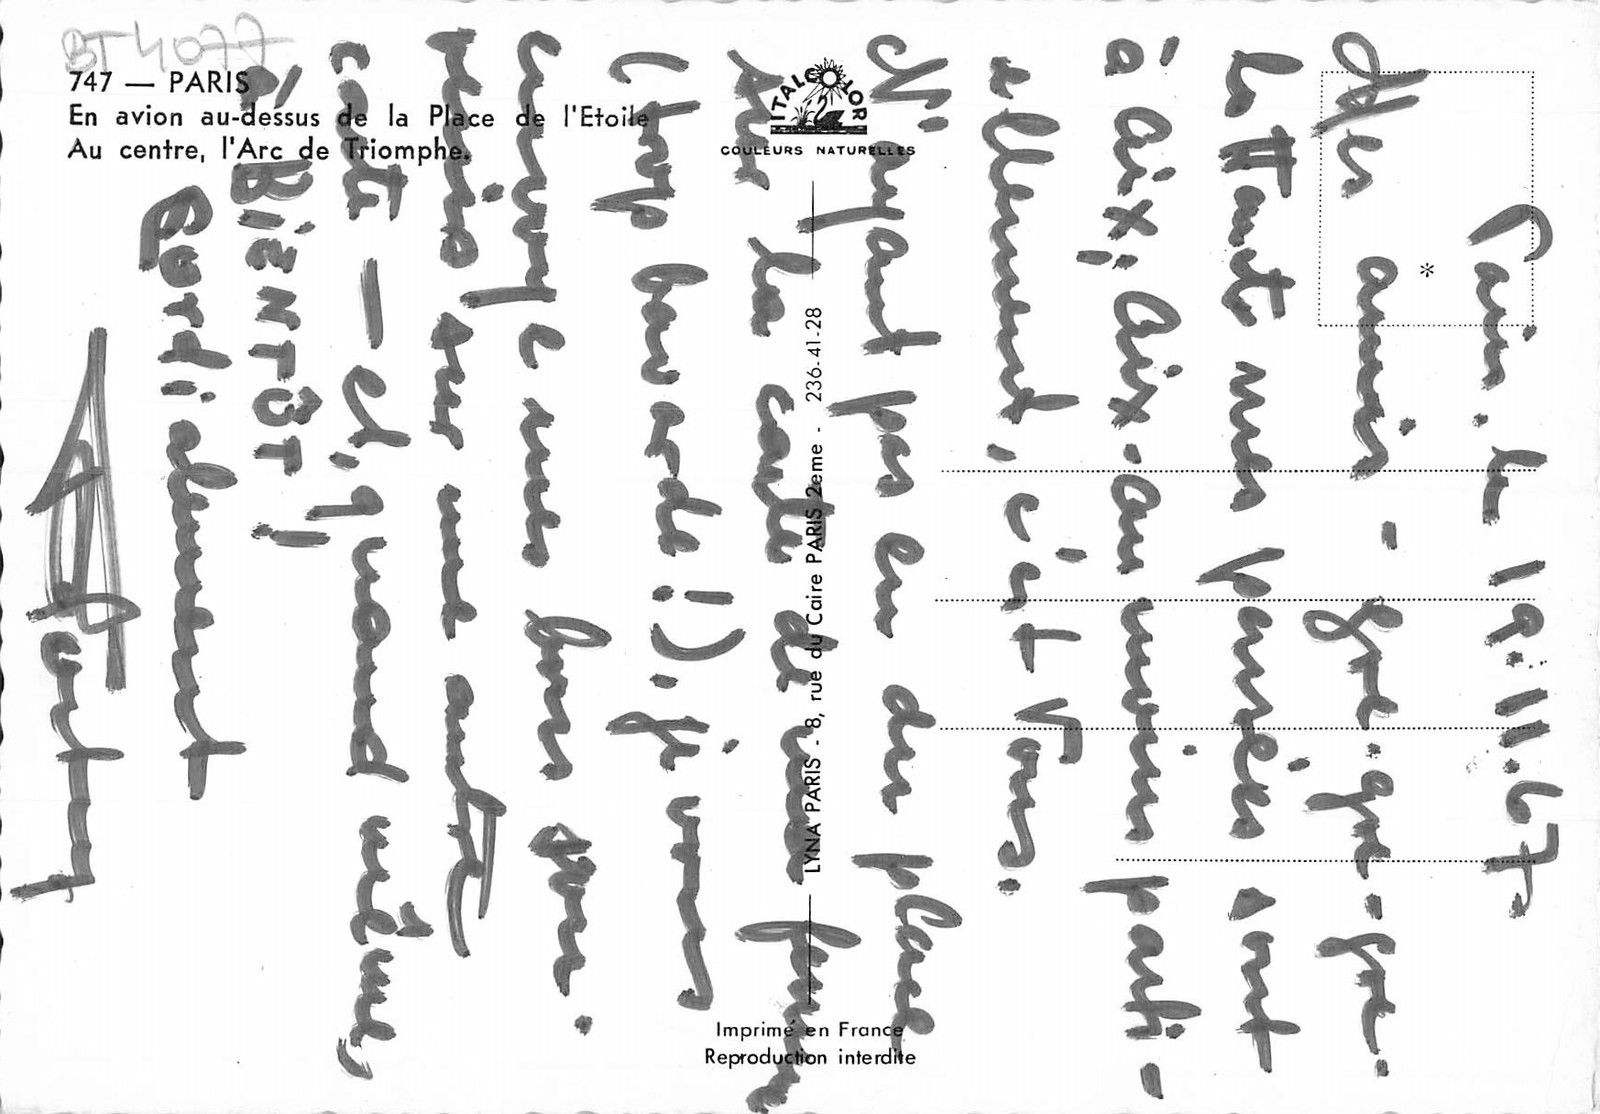 BT 4077
747 — PARIS
En avion au-dessus de la Place de l'Etoile
Au centre, l'Arc de Triomphe.
ITALCOLOR
COULEURS NATURELLES
LYNA PARIS - 8, rue du Caire PARIS 2eme - 236-41-28
Imprimé en France
Reproduction interdite
Paris. le 19.11.67
Mes amis -
mes pensées sont
à Aix, Aix-au moins parti-
ellement, c'est vous.
N'ayant pas eu de place
sur la carte de ma femme
(trop bavarde !), je vous
envoye mes bons sou.
venirs sur une autre
carte — et, quand même,
à BIENTÔT !
Cordialement